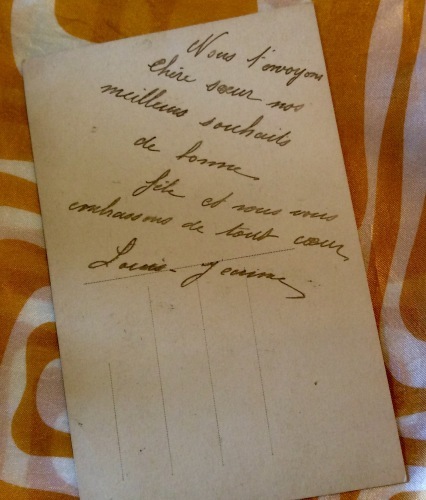 Nous t'envoyons
Chère sœur nos
meilleurs souhaits
de bonne
fête et nous vous
embrassons de tout cœur,
Louis-Jeanne